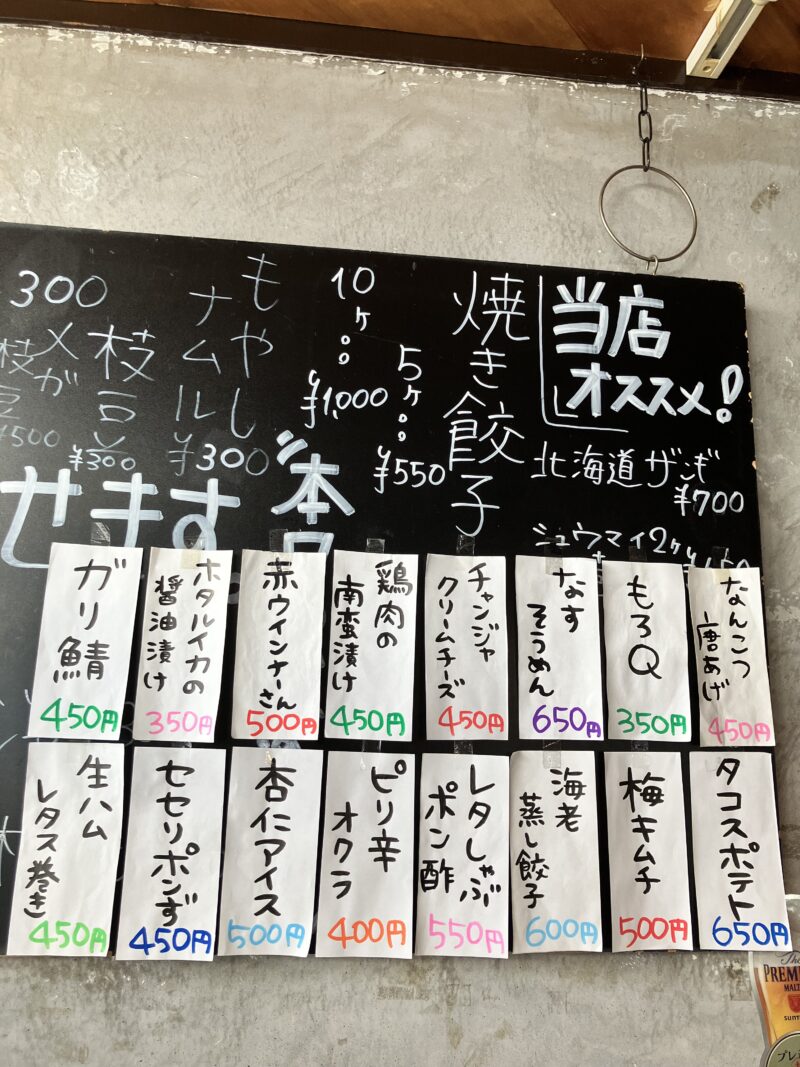 当店
オススメ!
北海道ザンギ
¥700
シュウマイ2ヶ
焼き餃子
5ヶ。。¥550
10ヶ。。¥1,000
もやし
ナムル
¥300
枝豆
¥300
メガ
枝豆
¥500
300
せます
なんこつ
唐あげ
450円
もろQ
350円
なす
そうめん
650円
チャンジャ
クリームチーズ
450円
鶏肉の
南蛮漬け
450円
赤ウインナーさん
500円
ホタルイカの
醤油漬け
350円
ガリ鯖
450円
タコスポテト
650円
梅キムチ
500円
海老
蒸し餃子
600円
レタしゃぶ
ポン酢
550円
ピリ辛
オクラ
400円
杏仁アイス
500円
セセリポンず
450円
生ハム
レタス巻き
450円
The
PREM
MAL
SUNT
プレ